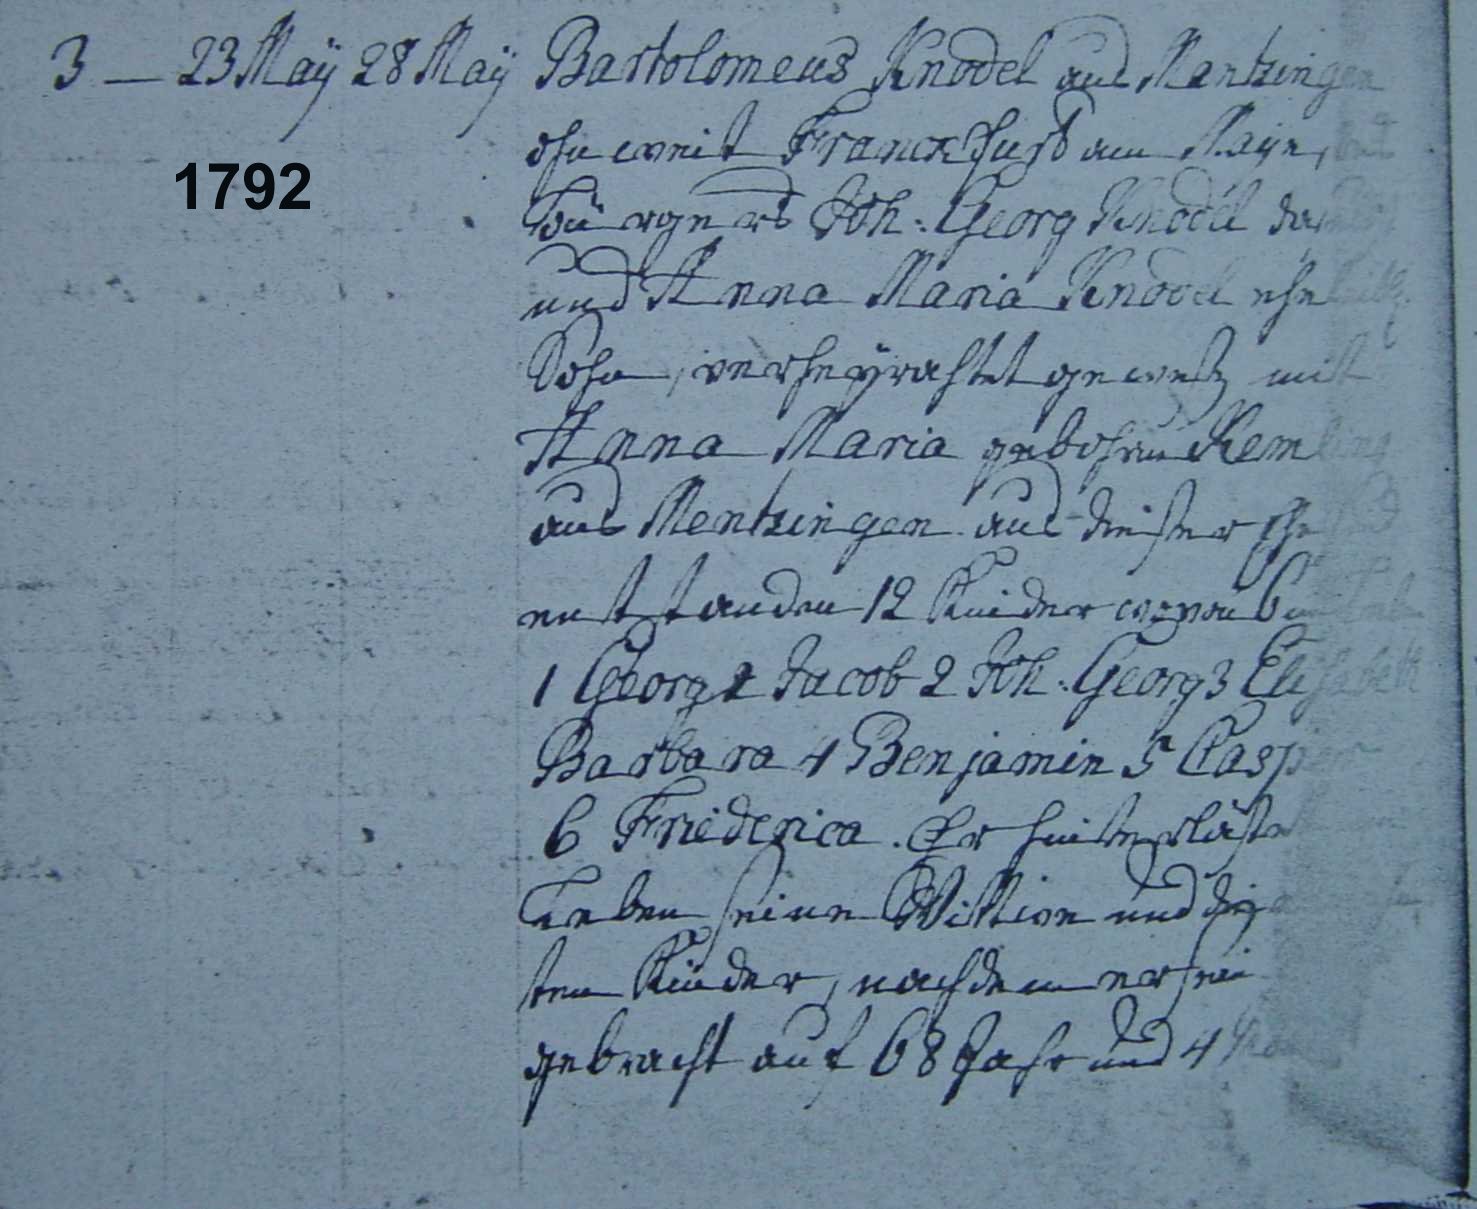 3 — 23 Maÿ 28 Maÿ Bartolomeus Knodel aus Mentzingen
ohnweit Franckfurt am Mayn,
bürgers Joh: Georg Knodel
und Anna Maria Knodel ehe
Sohn, verheyrahtet gewest mit
Anna Maria gebohrne
aus Mentzingen aus dieser Ehe
entstanden 12 Kinder wovon 6
1 Georg Jacob 2 Joh: Georg 3 Elisabeth
Barbara 4 Benjamin 5 Casper
6 Friederica. Er hinterläst
Leben seine Wittwe und
ten Kinder, nachdem er sein
gebracht auf 68 Jahr und 4
1792